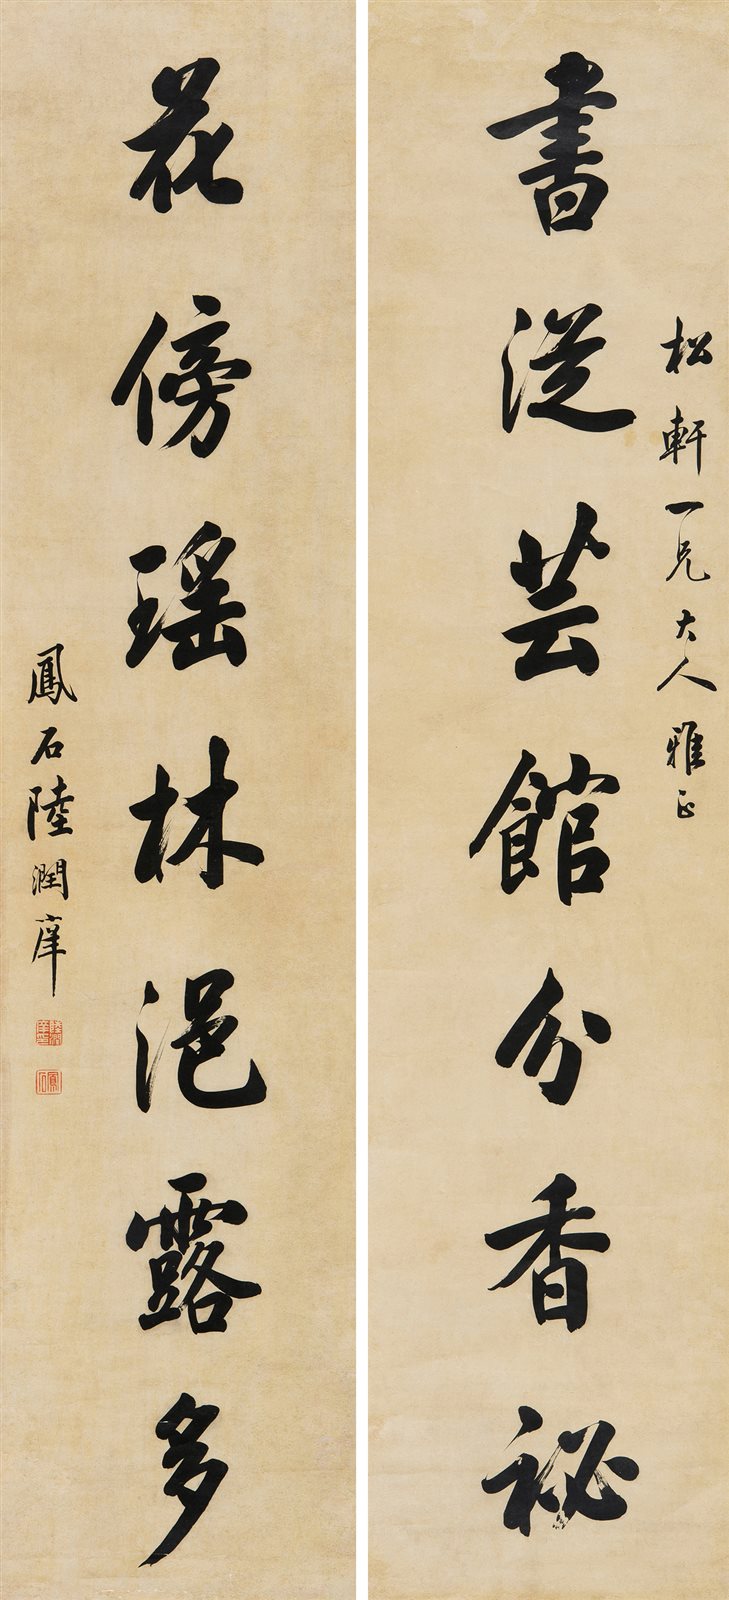 松軒一兄大人雅正
書從芸館分香秘
花傍瑤林浥露多
鳳石陸潤庠